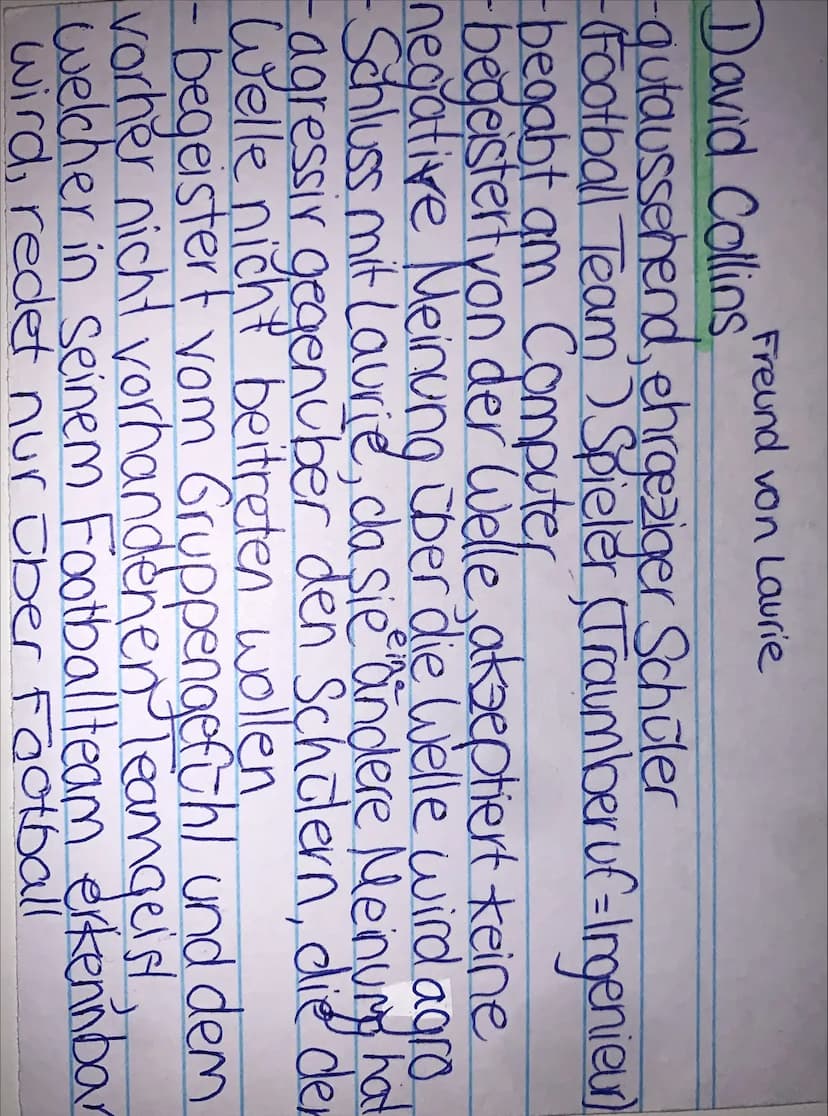 Freund von Laurie
David Collins
- gutaussehend, ehrgeziger Schüler
- (Football Team) Spieler, (Traumberuf = Ingenieur)
- begabt am Computer
- begeistert von der Welle, akzeptiert keine
negative Meinung über die Welle wird agro
- Schluss mit Laurie, da sie eine andere Meinung hat
- agressiv gegenüber den Schülern, die der
Welle nicht beitreten wollen
- begeistert vom Gruppengefühl und dem
vorher nicht vorhandenen Teamgeist
welcher in seinem Footballteam erkennbar
wird, redet nur über Football